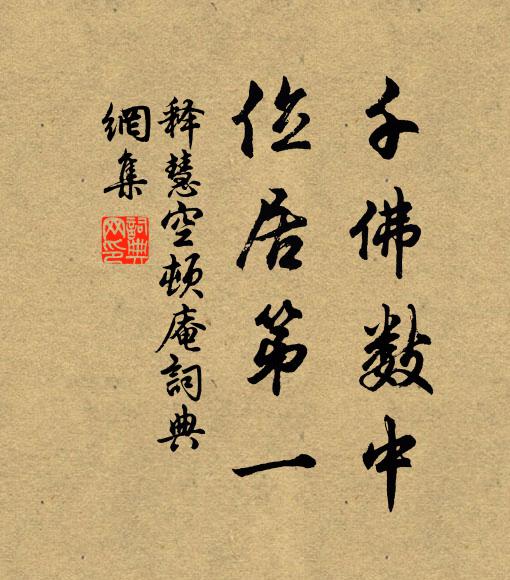 千佛数中
位居第一
释慧空顿庵詞典
網集
詞典
网印